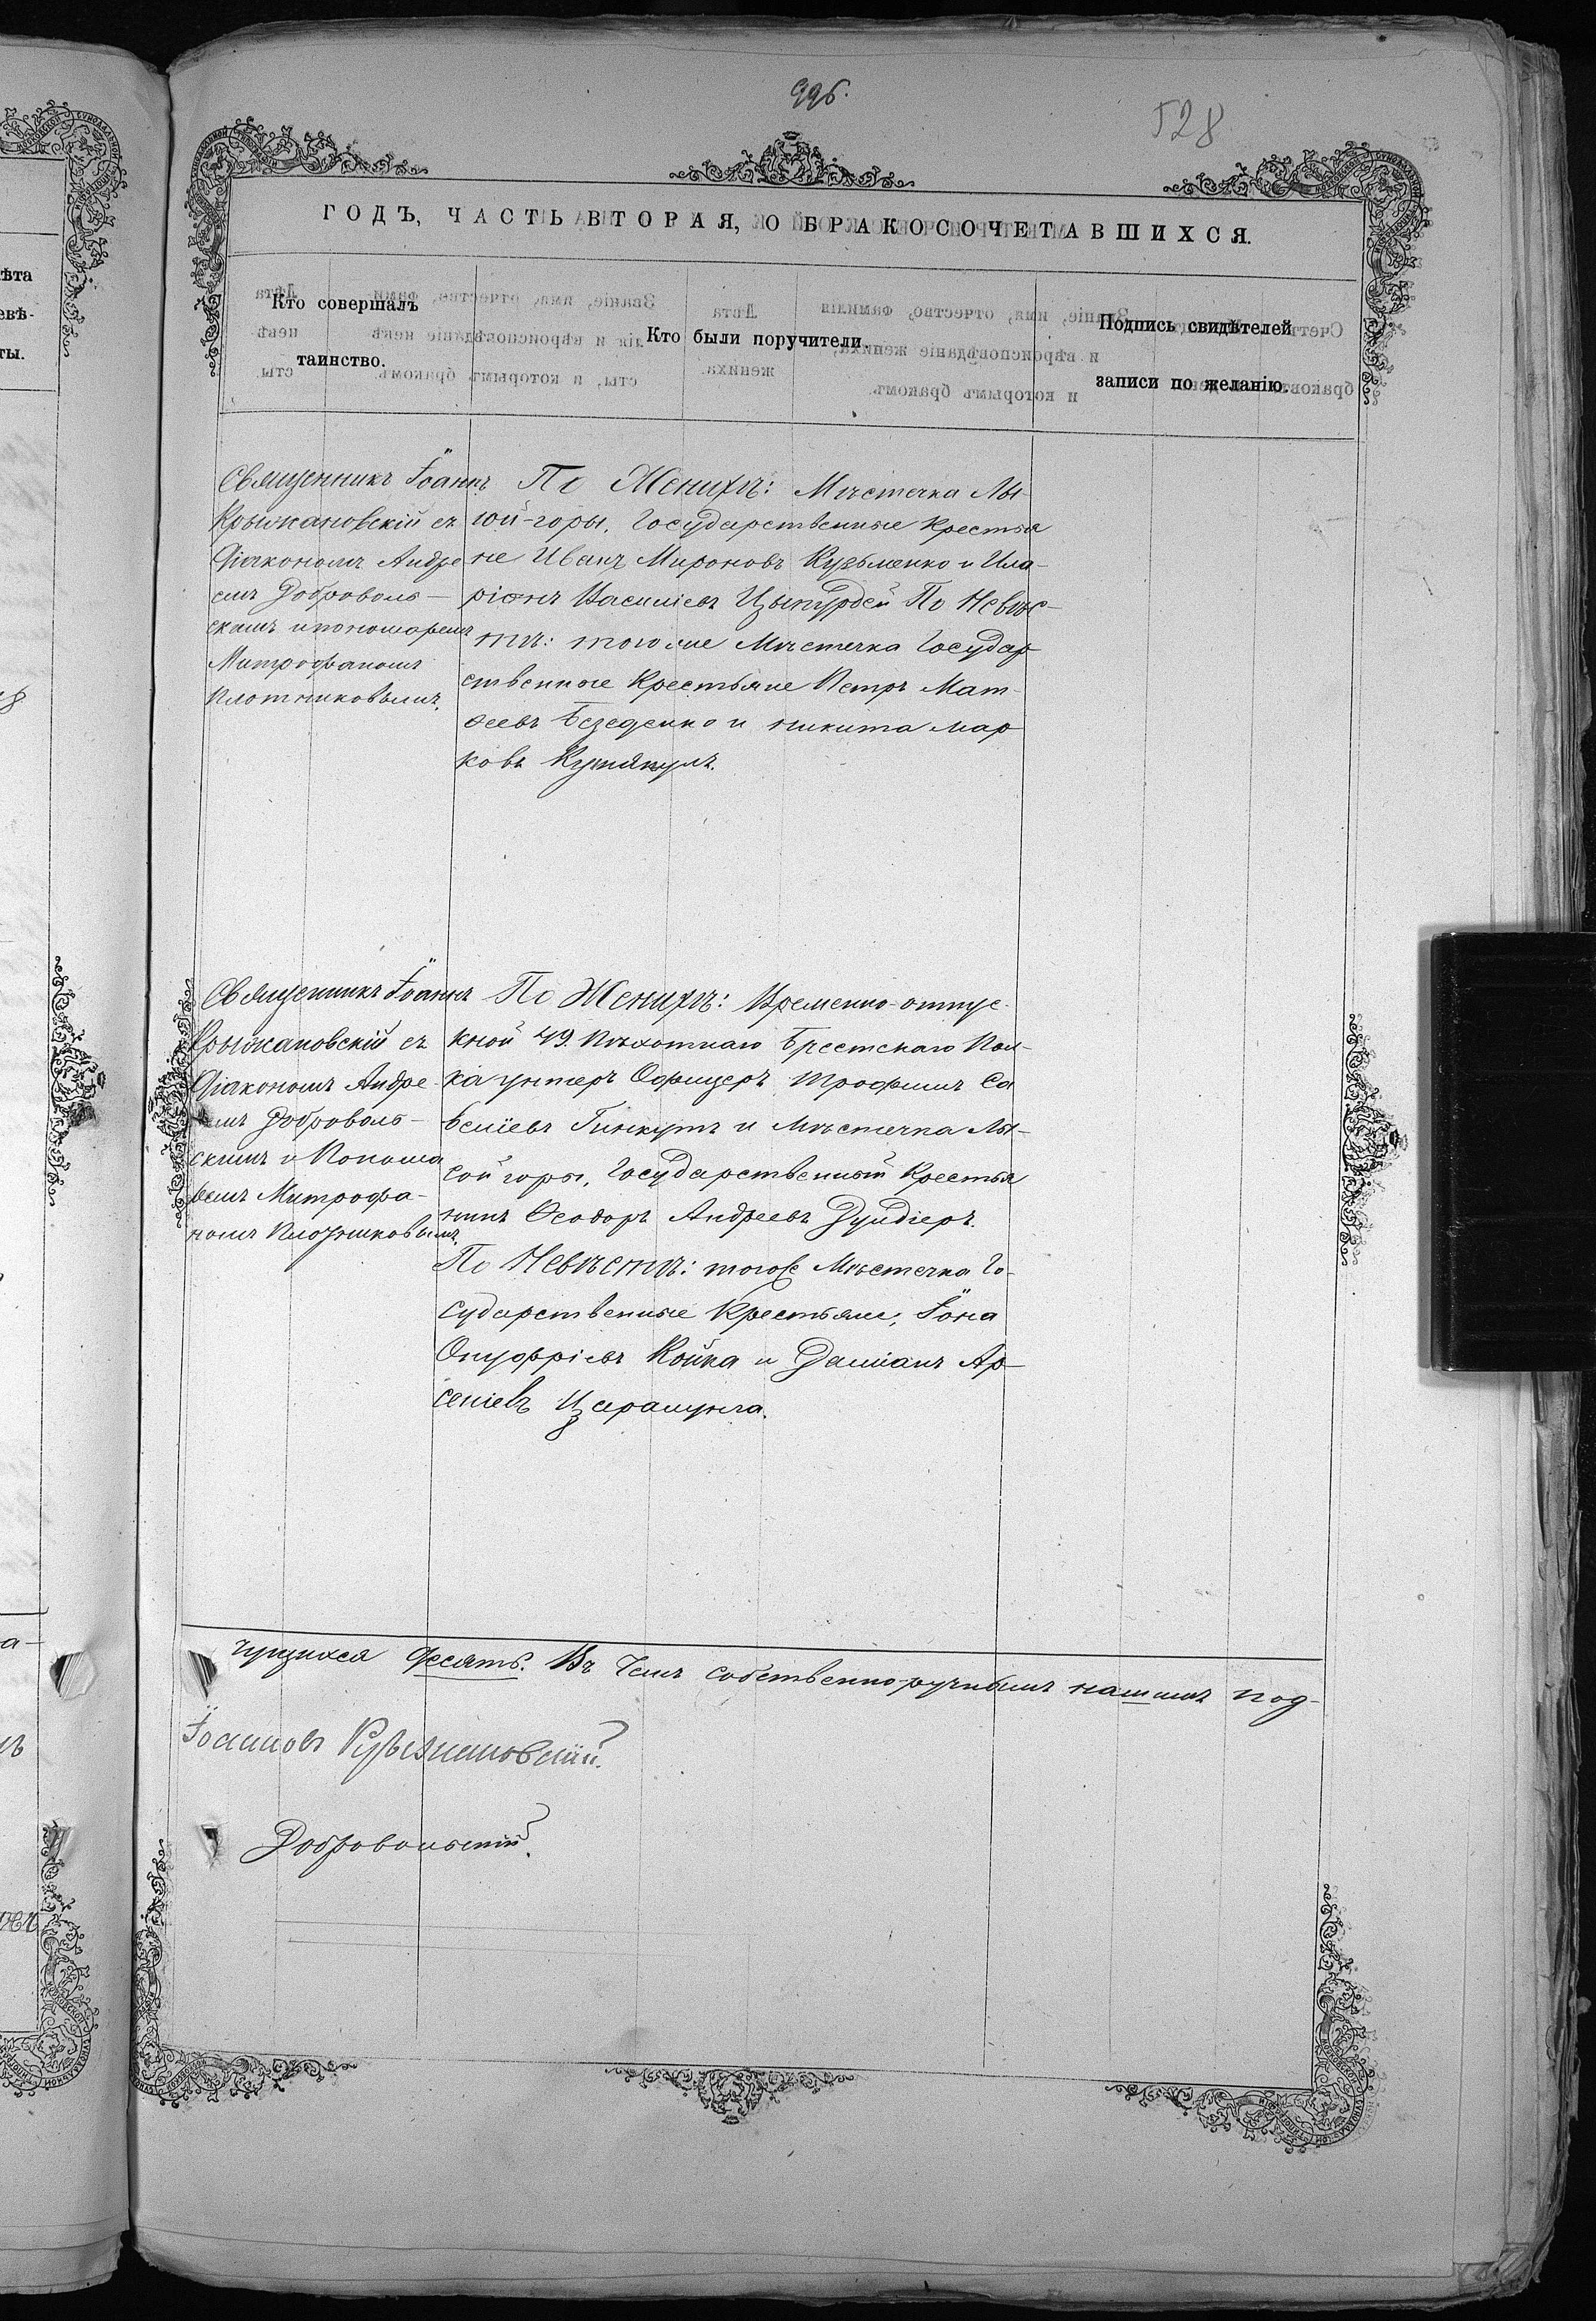 996.
528
ГОДЪ, ЧАСТЬ ВТОРАЯ, О БРАКОСОЧЕТАВШИХСЯ.
Кто совершалъ
таинство.
Кто были поручители.
Подпись свидѣтелей
записи по желанію.
Священникъ Іоаннъ
Крыжановскій съ
Діакономъ Андре
емъ Доброволь-
скимъ и пономаремъ
Митрофаномъ
Плотниковымъ.
По Женихѣ: Мѣстечка Лы-
сой-горы, Государственные Крестья
не Иванъ Мироновъ Кузьменко и Ила-
ріонъ Василіевъ Цыпурдей По Невѣс-
тѣ: того же Мѣстечка Государ
ственные Крестьяне Петръ Мат-
ѳеевъ Безеденко и никита мар
ковъ
Священникъ Іоаннъ
Крыжановскій съ
Діакономъ Андре
емъ Доброволь-
скимъ и Понома
ремъ Митрофа-
номъ Плотниковымъ.
По Женихѣ: Временно-отпус-
кной 49. Пѣхотнаго Брестскаго Пол-
ка унтеръ Офицеръ Трофимъ Са
веліевъ Гинкутъ и Мѣстечка Лы-
сой горы, Государственный Крестья
нинъ Ѳеодоръ Андреевъ Дундіеръ.
По Невѣстѣ: тогоже Мѣстечка Го-
сударственные Крестьяне, Іона
Онуфріевъ Койка и Даміанъ Ар-
сеніевъ Царалунга.
чущихся десять. Въ чемъ собственноручнымъ нашимъ под-
Іоанновъ Крыжановскій.
Добровольскій.